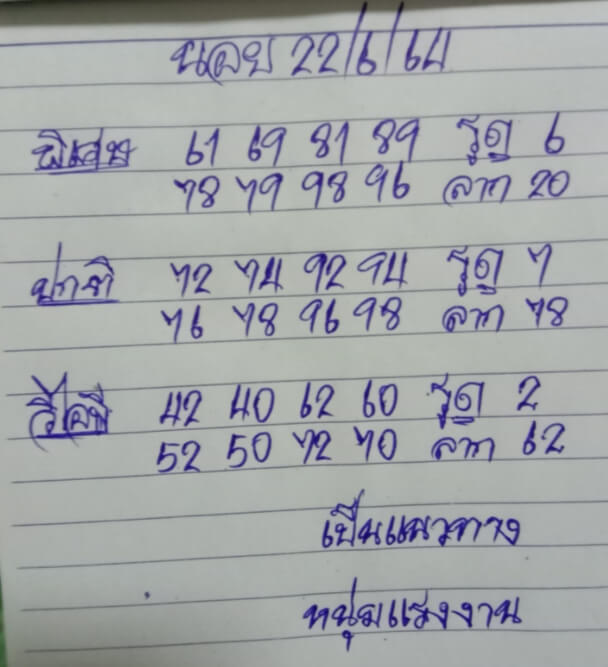 นอย 22/6/64
พิเศษ 61 69 81 89 รูด 6
78 79 98 96 ลาก 20
ปกติ 72 74 92 94 รูด 7
76 78 96 98 ลาก 78
วีไอพี 42 40 62 60 รูด 2
52 50 72 70 ลาก 62
เป็นแนวทาง
หนุ่มแรงงาน